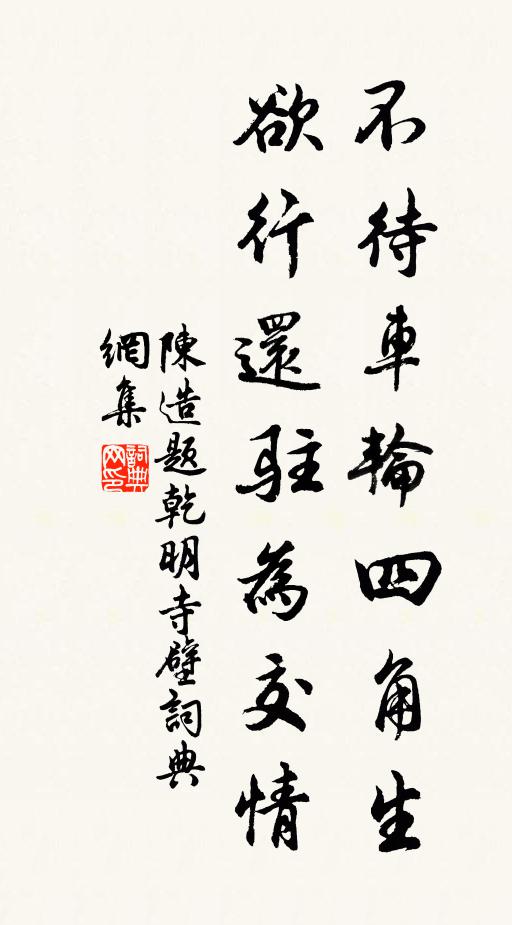 不待車輪四角生
欲行還駐為交情
陳造題乾明寺壁詞典
網集
詞典網印